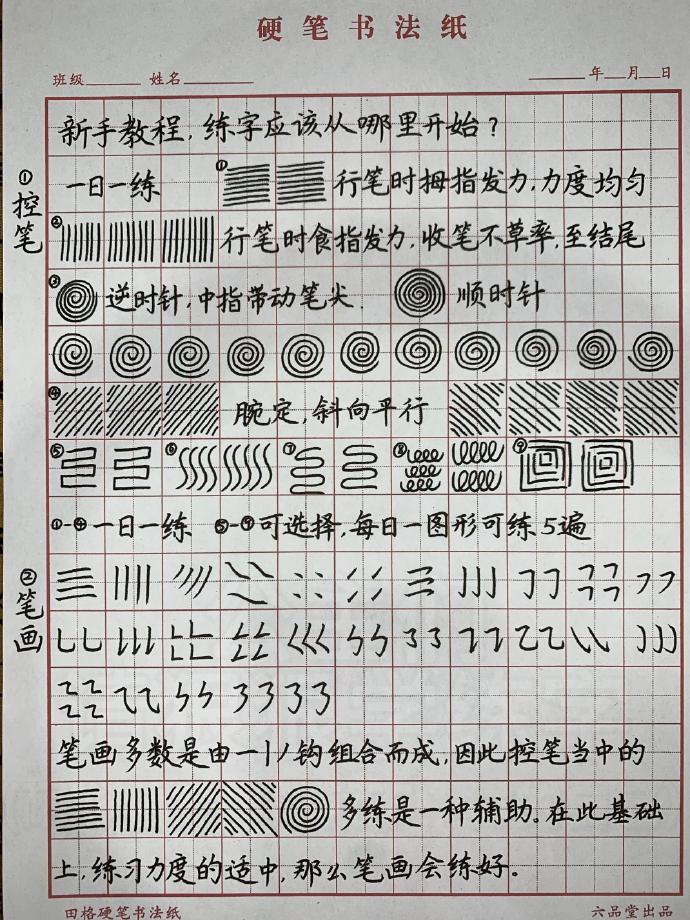 硬笔书法纸
班级 姓名 年 月 日
新手教程,练字应该从哪里开始?
①控笔
一日一练 ① 行笔时拇指发力,力度均匀
② 行笔时食指发力,收笔不草率,至结尾
③ 逆时针,中指带动笔尖. 顺时针
④ 腕定,斜向平行
⑤ ⑥ ⑦ ⑧ ⑨
①-④一日一练 ⑤-⑨可选择,每日一图形可练5遍
②笔画
笔画多数是由一丨丿钩组合而成,因此控笔当中的
多练是一种辅助。在此基础
上,练习力度的适中,那么笔画会练好.
田格硬笔书法纸 六品堂出品